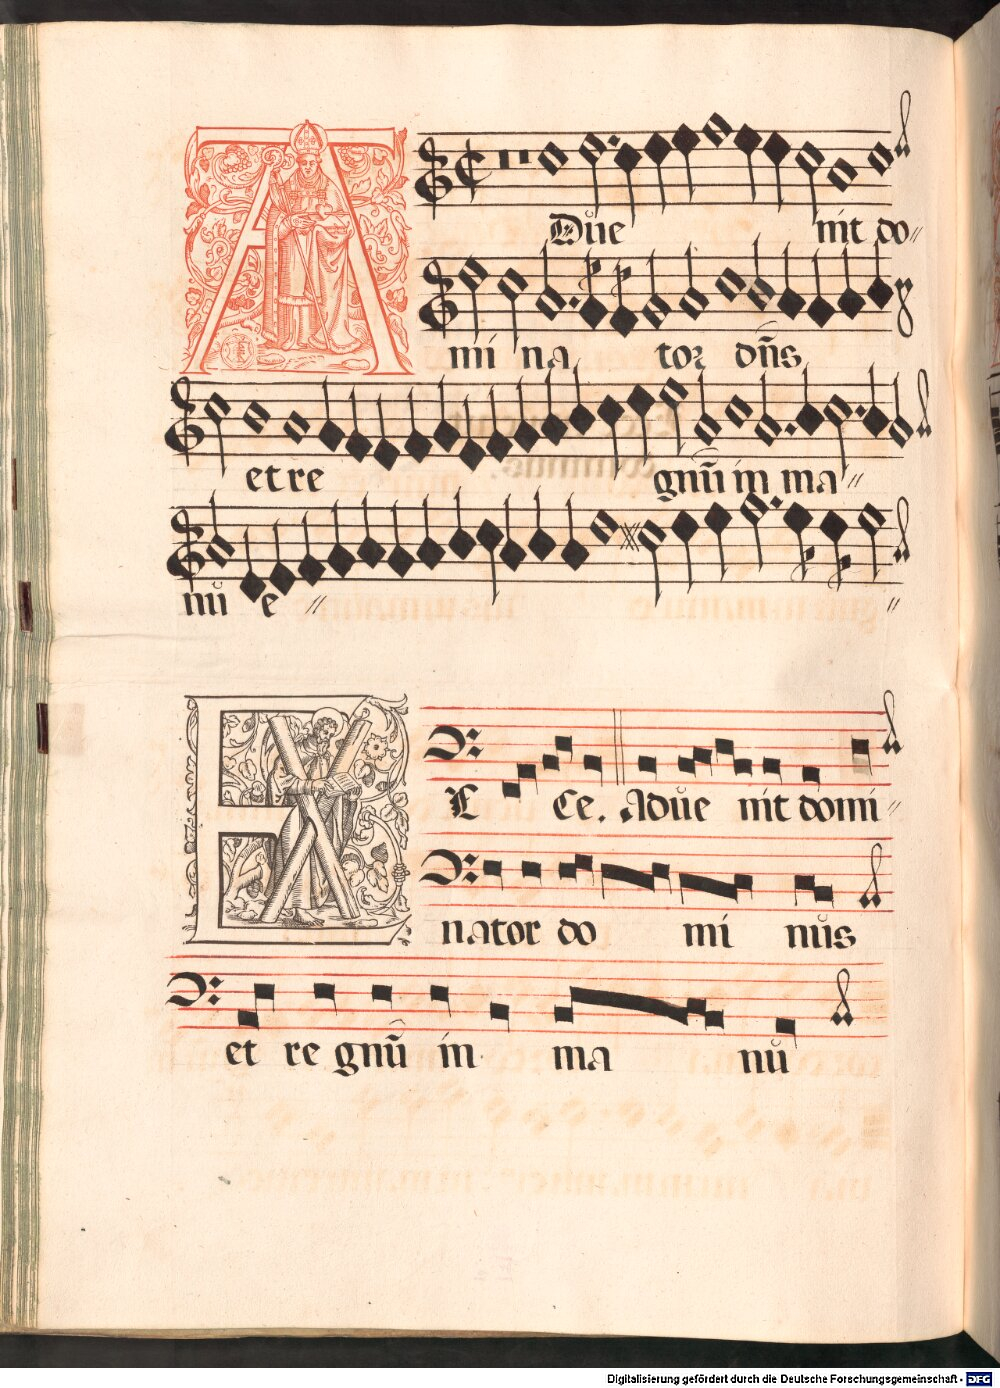 A Dūe nit do//
mi na tor dn̄s
et re gnū in ma //
nū e // //
E L Ce. Adūe nit domi //
nator do mi nūs
et re gnū in ma nū
Digitalisierung gefördert durch die Deutsche Forschungsgemeinschaft - DFG